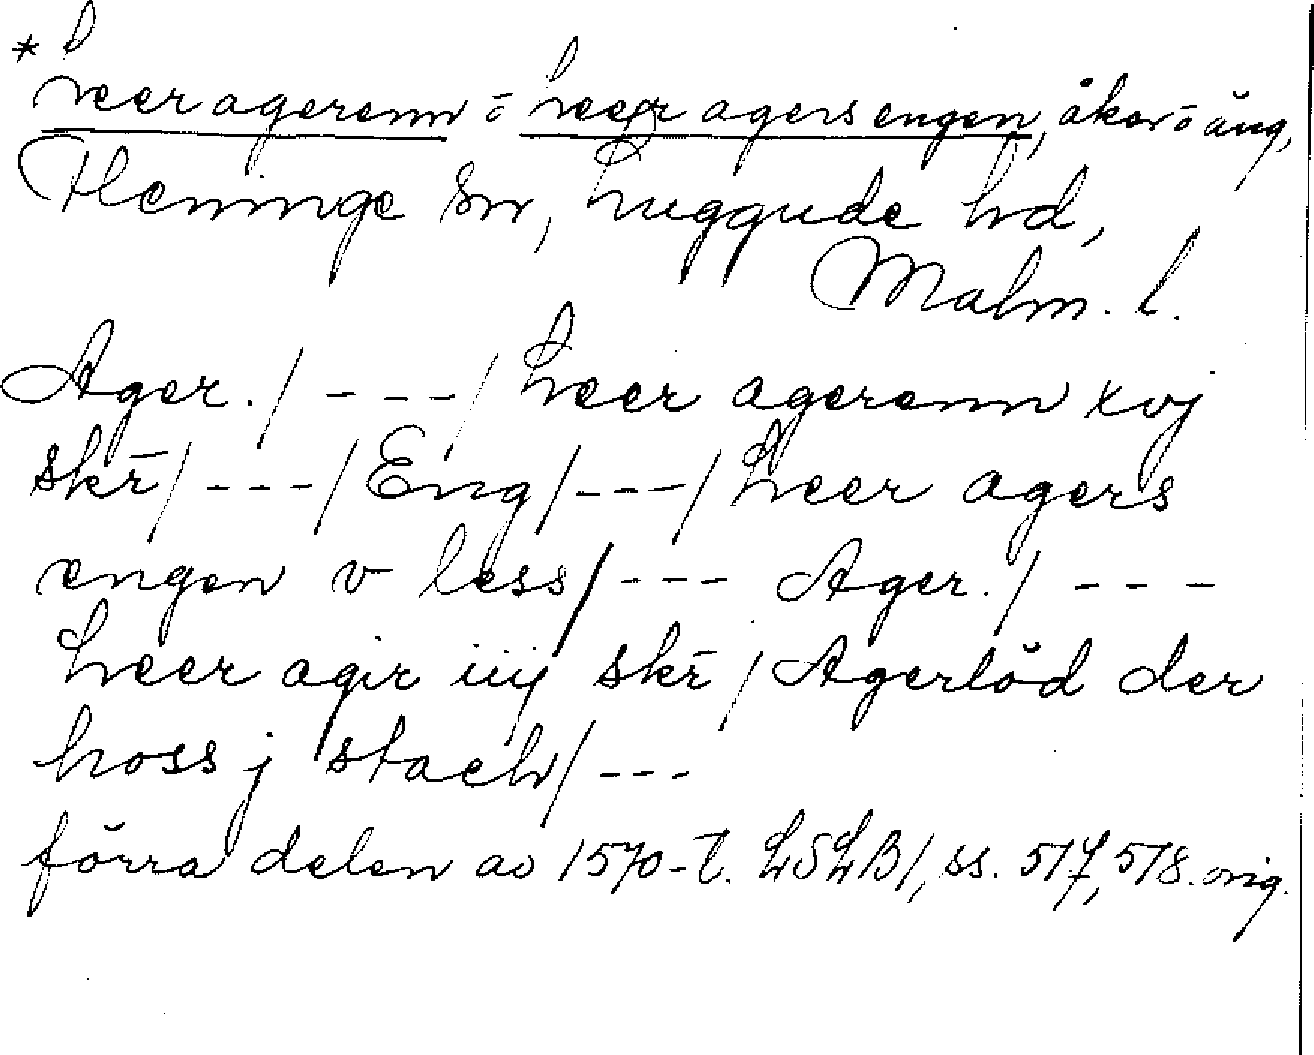 * Leer agerenn o Leer agers engen, åker o äng,
Fleninge sn, Luggude hd,
Malm. l.
Ager. / - - - / Leer agerenn xvj
skr̄ / - - - / Eng / - - - / Leer agers
engen v less / - - - Ager. / - - -
Leer agir iiij skr̄ / Agerlöd der
hoss j stach / - - -
förra delen av 1570-t. LSLB1, ss. 517, 518. orig.